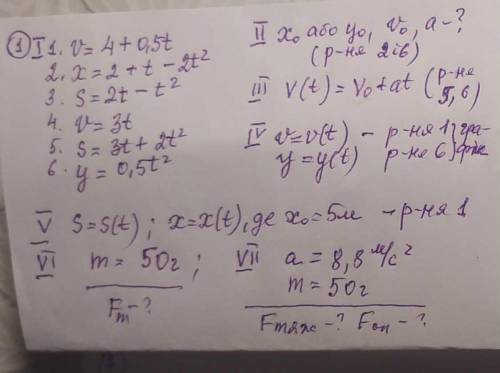 ① I 1. v = 4 + 0,5t
2. x = 2 + t − 2t²
3. s = 2t − t²
4. v = 3t
5. s = 3t + 2t²
6. y = 0,5t²
II x₀ або y₀, v₀, a − ?
(р-ня 2 і 6)
III v(t) = v₀ + at (р-ня 5, 6)
IV v = v(t) − р-ня 1 } гра-
y = y(t) р-ня 6 } фіки
V s = s(t); x = x(t), де x₀ = 5м − р-ня 1
VI m = 50г;
Fт − ?
VII a = 8,8 м/с²
m = 50г
Fтяж − ? Fоп − ?